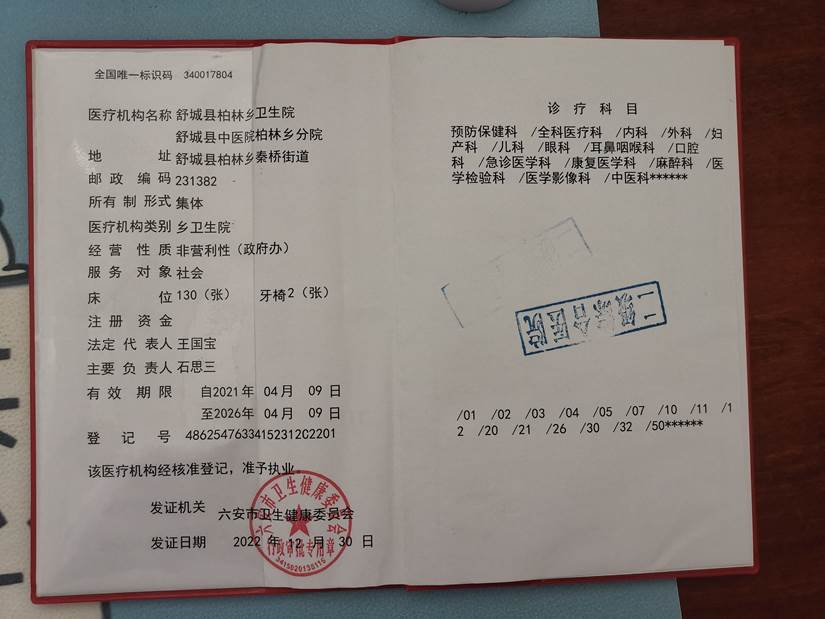 全国唯一标识码 340017804
医疗机构名称 舒城县柏林乡卫生院
舒城县中医院柏林乡分院
地 址 舒城县柏林乡秦桥街道
邮 政 编 码 231382
所有 制 形式 集体
医疗机构类别 乡卫生院
经 营 性 质 非营利性（政府办）
服 务 对 象 社会
床 位 130（张） 牙椅2（张）
注 册 资 金
法定 代 表人 王国宝
主要 负 责人 石思三
有 效 期 限 自2021年 04月 09日
至2026年 04月 09日
登 记 号 48625476334152312C2201
该医疗机构经核准登记，准予执业。
发证机关 六安市卫生健康委员会
发证日期 2022年 12月 30日
六安市卫生健康委员会
行政审批专用章
诊 疗 科 目
预防保健科 /全科医疗科 /内科 /外科 /妇
产科 /儿科 /眼科 /耳鼻咽喉科 /口腔
科 /急诊医学科 /康复医学科 /麻醉科 /医
学检验科 /医学影像科 /中医科******
二级综合医院
/01 /02 /03 /04 /05 /07 /10 /11 /1
2 /20 /21 /26 /30 /32 /50******